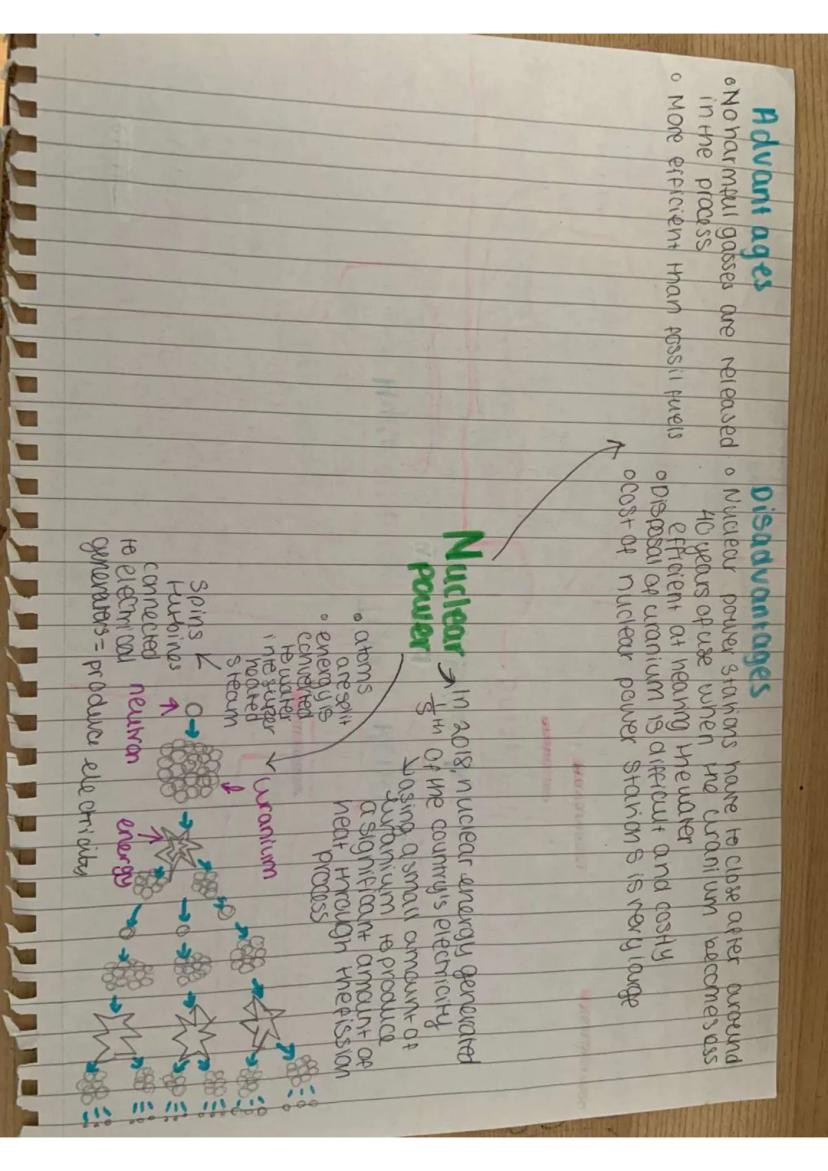 Advantages
o No harmful gasses are released
in the process
o More efficient than fossil fuels
Disadvantages
o Nuclear power stations have to close after around
40 years of use when the uranium becomes ass
efficient at heating the water
o Disposal of uranium is difficult and costly
o Cost of nuclear power stations is very large
Nuclear
power
In 2018, nuclear energy generated
1/5th of the country's electricity
using a small amount of
uranium to produce
a significant amount of
heat through the fission
process
o atoms
are split
o energy is
converted
to water
into super
heated
steam
spins
turbines
connected
to electrical
generators = produce electricity
uranium
neutron
energy